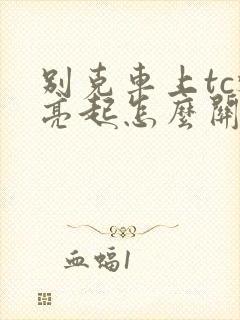 别克車上tc
亮起怎麼關
血蝠1